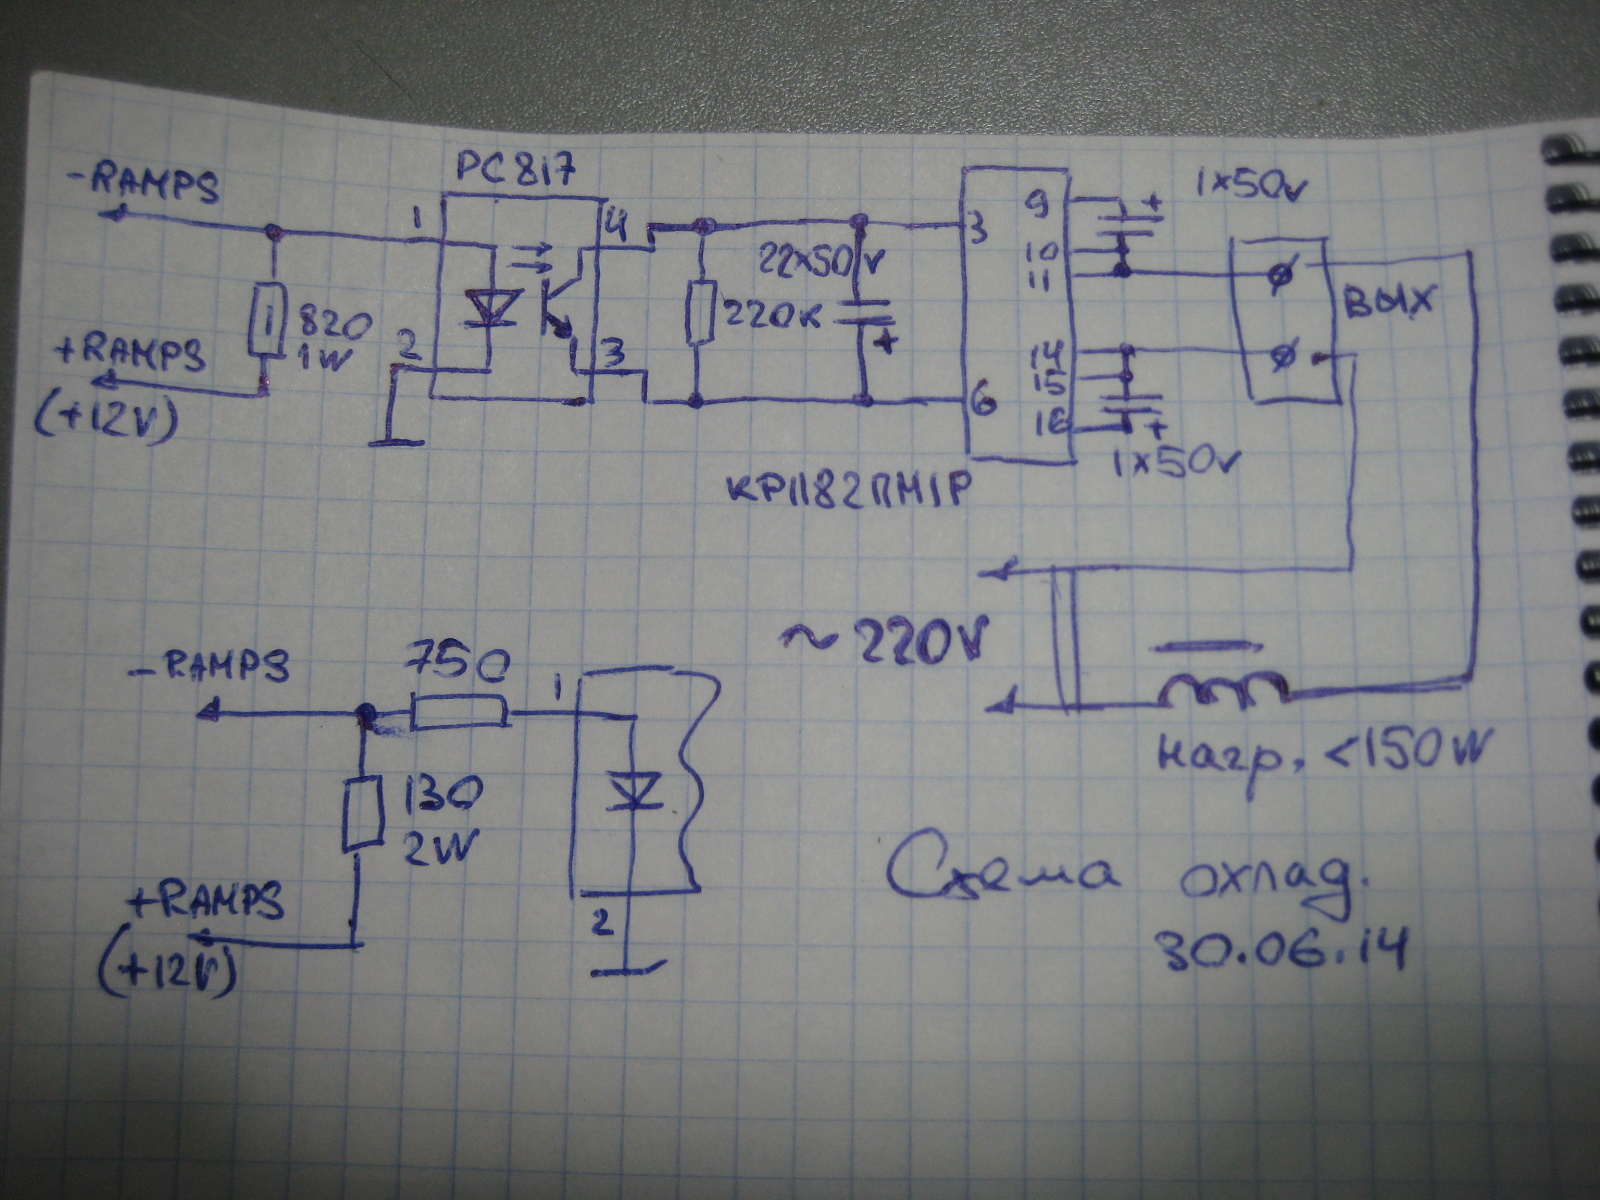 -RAMPS
PC817
1
4
820
1W
+RAMPS
(+12V)
2
3
22x50v
220к
+
3
6
9
10
11
14
15
16
+
1x50v
ВЫХ
+
1x50v
КР1182ПМ1Р
~220V
нагр. <150W
-RAMPS
750
1
130
2W
+RAMPS
(+12V)
2
Схема охлад.
30.06.14